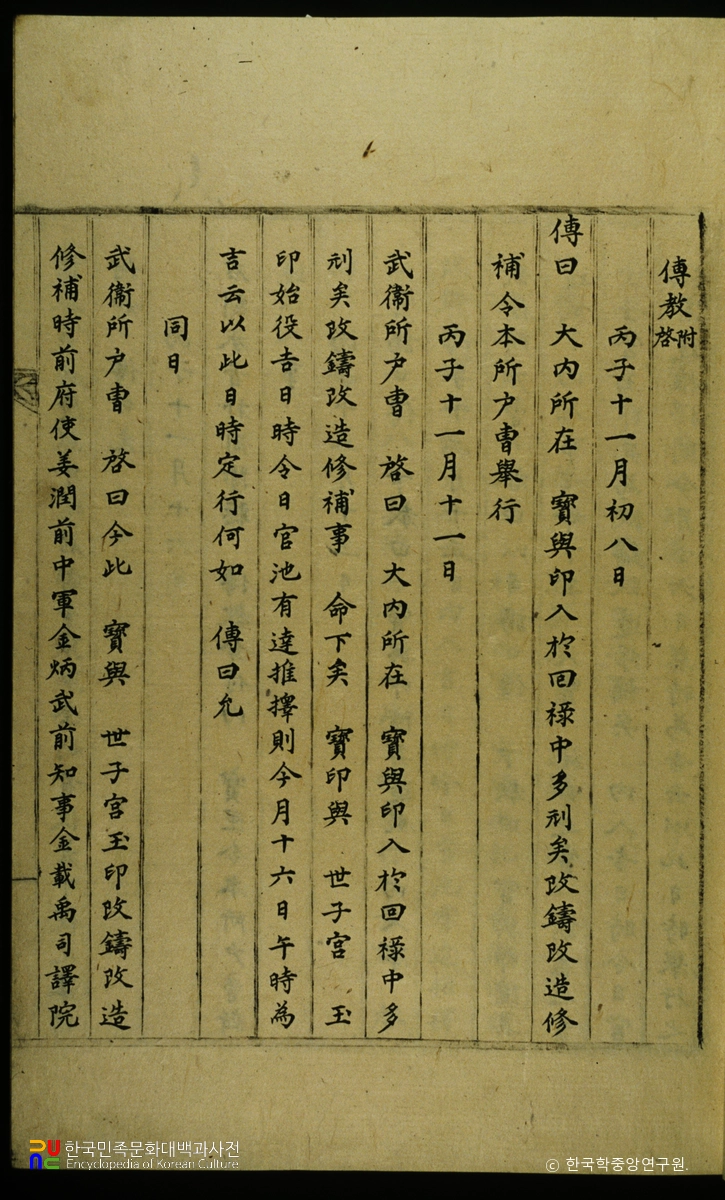 傳教 附啓
丙子十一月初八日
傳曰 大內所在 寶與印入於回祿中多刓矣改鑄改造修
補令本所戶曹擧行
丙子十一月十一日
武衛所戶曹 啓曰 大內所在 寶與印入於回祿中多
刓矣改鑄改造修補事 命下矣 寶印與 世子宮 玉
印始役吉日時令日官池有達推擇則今月十六日午時為
吉云以此日時定行何如 傳曰允
同日
武衛所戶曹 啓曰今此 寶與 世子宮玉印改鑄改造
修補時前府使姜潤前中軍金炳武前知事金載禹司譯院
한국민족문화대백과사전
Encyclopedia of Korean Culture
© 한국학중앙연구원.